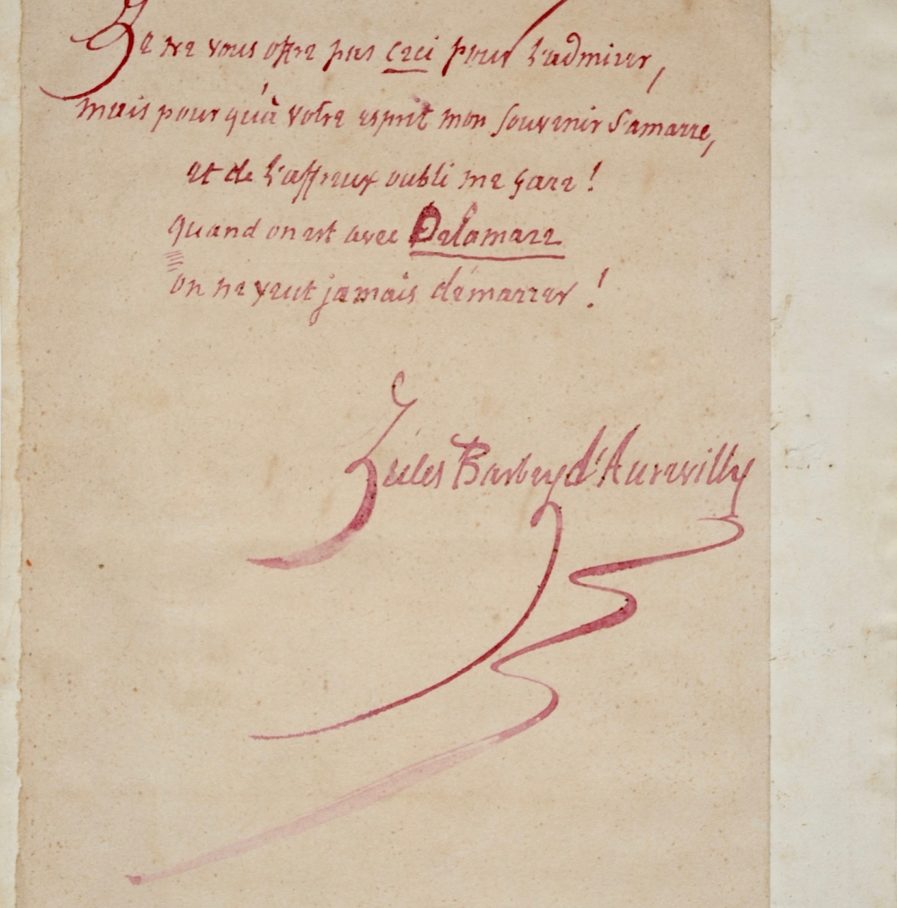 Je ne vous offre pas ceci pour l'admirer,
mais pour qu'à votre esprit mon souvenir s'amarre,
et de l'affreux oubli me gare !
quand on est avec Delamare
on ne veut jamais démarrer !
Jules Barbey d'Aurevilly